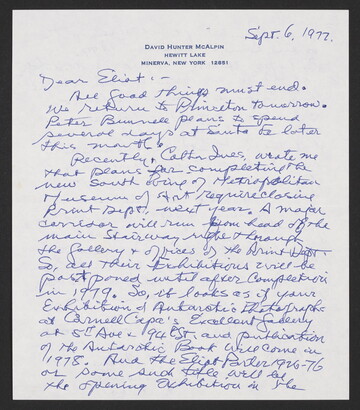 Sept. 6, 1977.
DAVID HUNTER McALPIN
HEWITT LAKE
MINERVA, NEW YORK 12851
Dear Eliot: -
All good things must end.
We return to Princeton tomorrow.
Peter Bunnell plans to spend
several days at Santa Fe later
this month.
Recently, Colta Ives, wrote me
that plans for completing the
new South Wing of Metropolitan
Museum of Art require closing
Print Dept. next year. A major
corridor will run from head of the
main stairway right through
the Gallery & offices of the Print Dept.
So, all their Exhibitions will be
postponed until after Completion
in 1979. So, it looks as if your
Exhibition of Antarctic Photographs
at Cornell Capa's Excellent Gallery
at 5th Ave & 94th St. and publication
of the Antarctic Book will come in
1978. And the Eliot Porter 1926-76
or some such title will be
the opening Exhibition in the